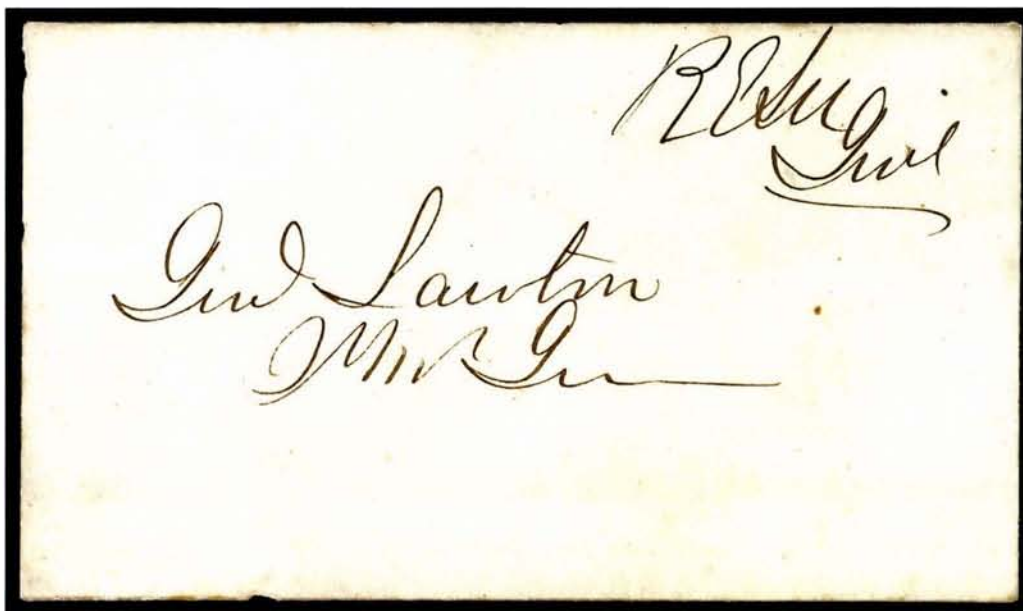 R E Lee
Genl
Genl Lawton
Gen